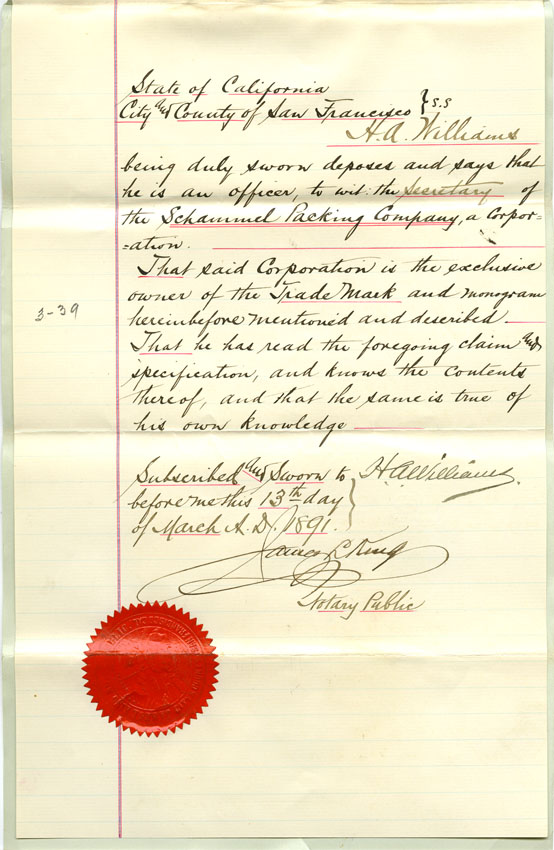 State of California
City and County of San Francisco } S.S
H. A. Williams
being duly sworn deposes and says that
he is an officer, to wit: the Secretary of
the Schammel Packing Company, a Corpor=
=ation.
That said Corporation is the exclusive
owner of the Trade Mark and monogram
hereinbefore mentioned and described
3-39
That he has read the foregoing claim and
specification, and knows the contents
thereof, and that the same is true of
his own knowledge
Subscribed and Sworn to } H. A. Williams.
before me this 13th day
of March A.D. 1891.
James L. King
Notary Public